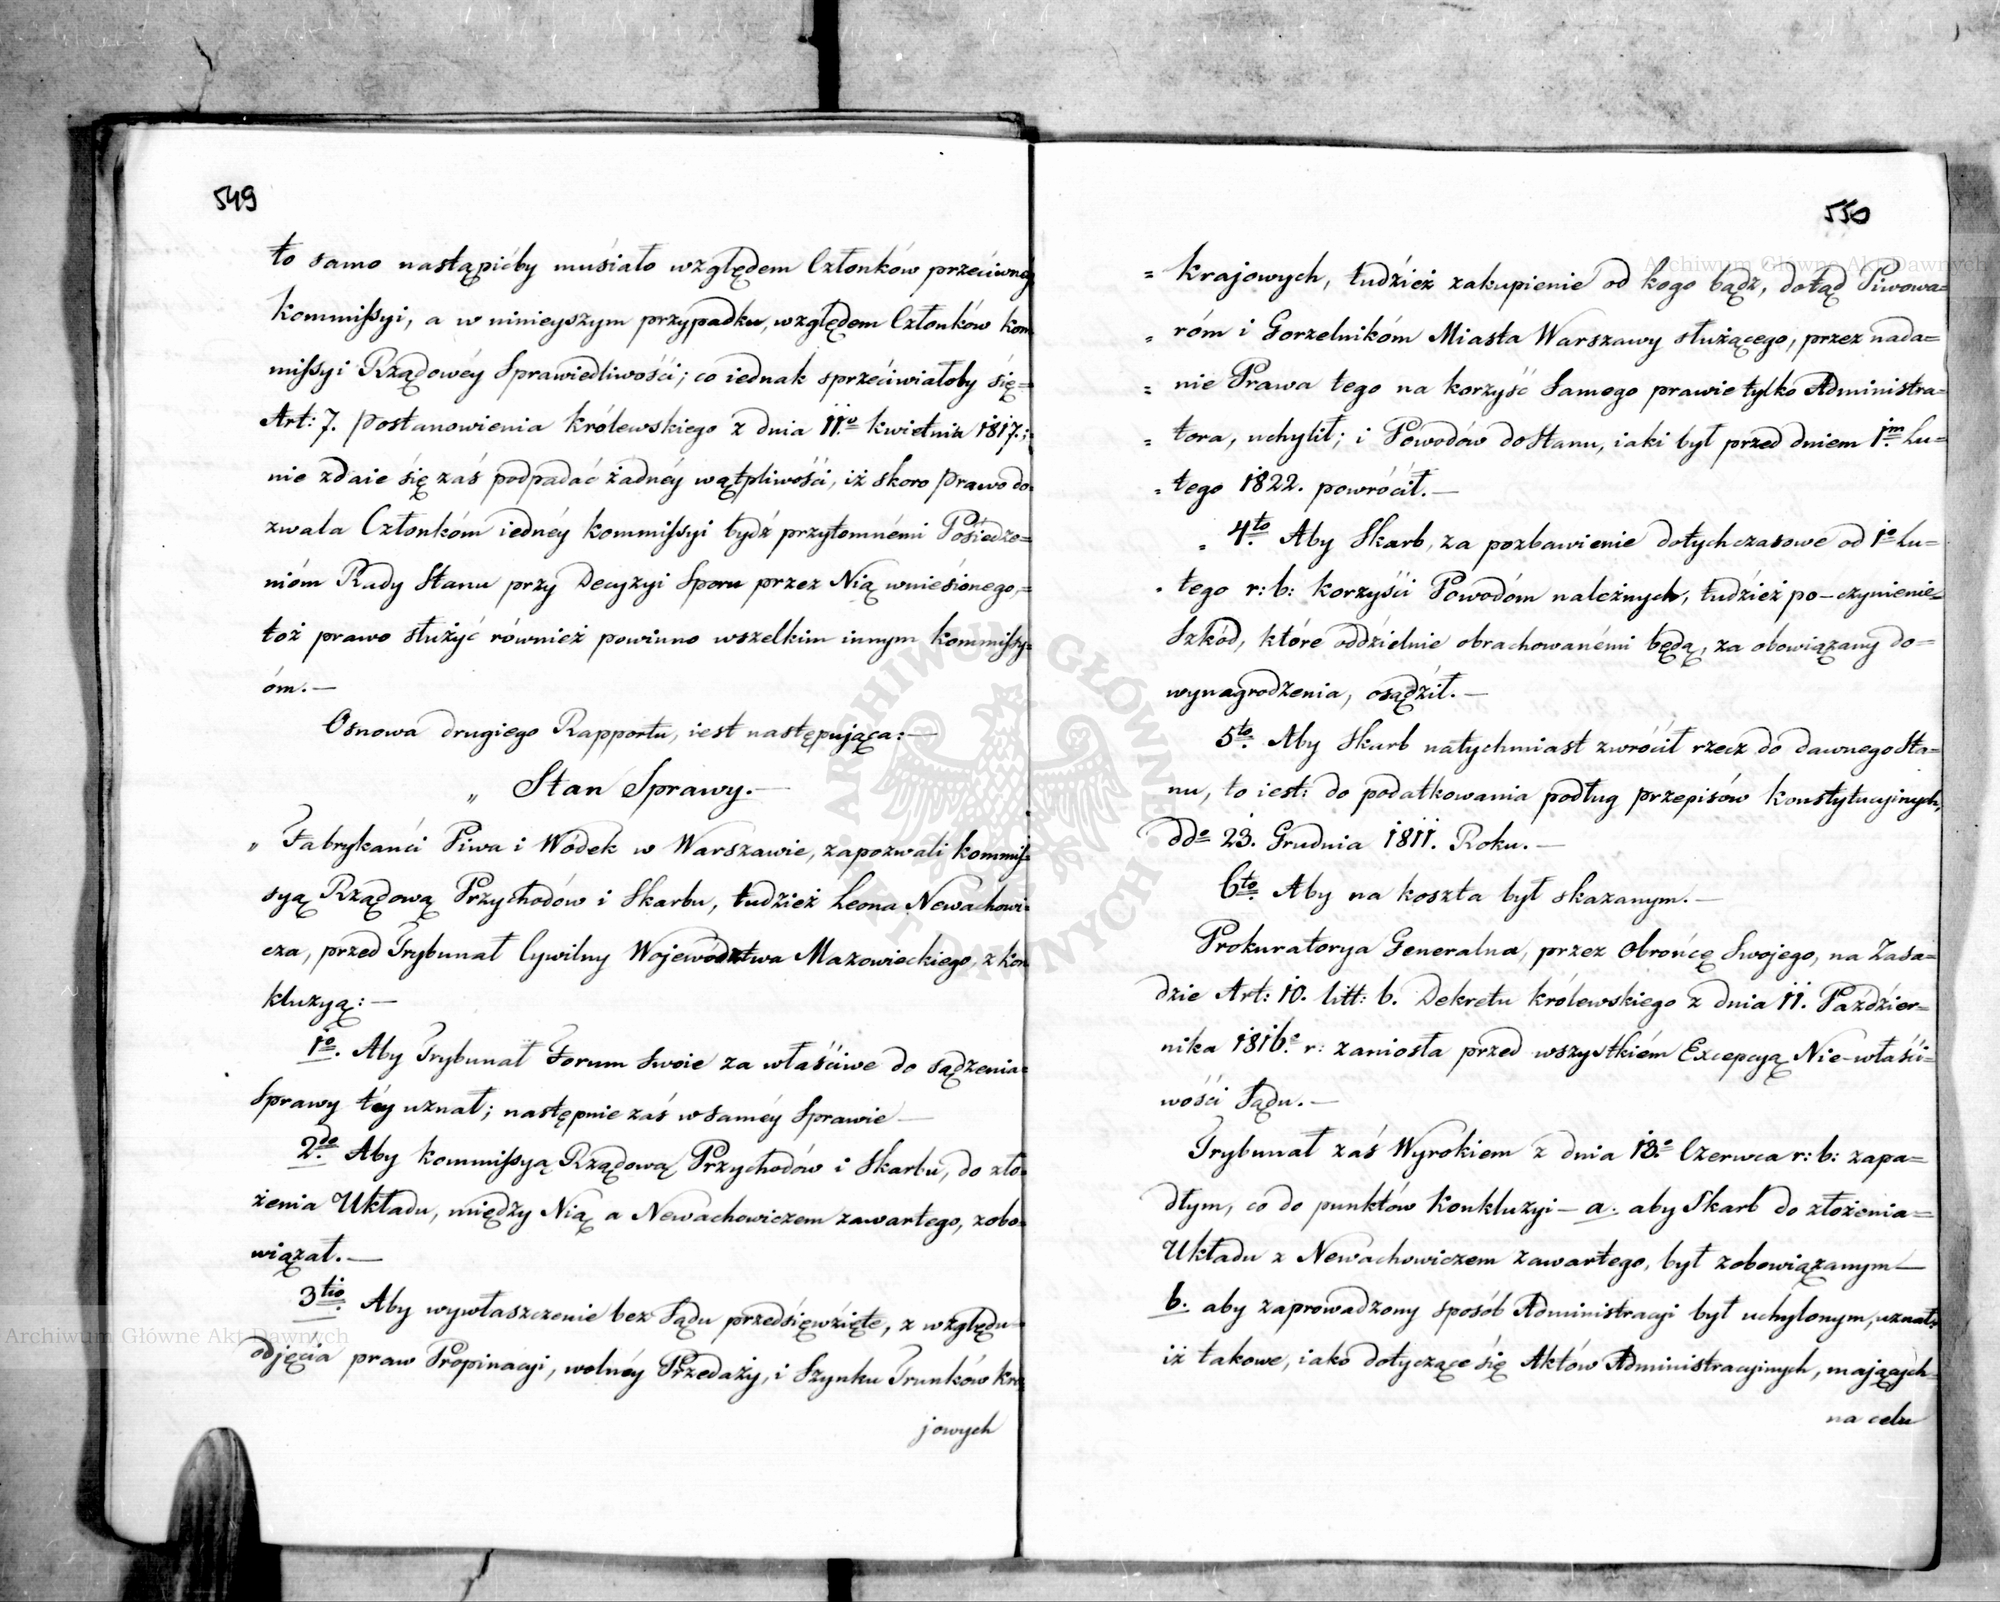 549
to samo nastąpićby musiało względem Członków przeciwnéy
Kommissyi, a w ninieyszym przypadku, względem Członków Kom
missyi Rządowéy Sprawiedliwości; co iednak sprzeciwiałoby się=
Art: 7. Postanowienia Królewskiego z dnia 11.º Kwietnia 1817.;
nie zdaie się zaś podpadać żadnéy wątpliwości, iż skoro Prawo do=
zwala Członkóm iednéy Kommissyi bydź przytomnémi Posiedze=
nióm Rady Stanu przy Decyzyi Sporu przez Nią wniesionego,=
toż prawo służyć również powinno wszelkim innym Kommissy=
óm.—
Osnowa drugiego Rapportu, iest następująca:—
„ Stan Sprawy.—
„ Fabrykanci Piwa i Wódek w Warszawie, zapozwali Kommis=
syą Rządową Przychodów i Skarbu, tudzież Leona Newachowi=
cza, przed Trybunał Cywilny Województwa Mazowieckiego, z kon
kluzyą:—
1º. Aby Trybunał Forum Swoie za właściwe do sądzenia=
Sprawy téy uznał; następnie zaś w saméy Sprawie—
2do. Aby Kommissyą Rządową Przychodów i Skarbu, do zło=
żenia Układu, między Nią a Newachowiczem zawartego, zobo=
wiązał.—
3tio. Aby wywłaszczenie bez Sądu przedsięwzięte, z względu=
odjęcia praw Propinacyi, wolnéy Przedaży, i Szynku Trunków kra=
jowych
550
= krajowych, tudzież zakupienie od kogo bądź, dotąd Piwowa=
= róm i Gorzelnikóm Miasta Warszawy służącego, przez nada=
= nie Prawa tego na korzyść Samego prawie tylko Administra=
= tora, uchylił; i Powodów do Stanu, iaki był przed dniem 1m. Lu=
= tego 1822. powrócił.—
= 4to. Aby Skarb, za pozbawienie dotychczasowe od 1º Lu=
= tego r: b: korzyści Powodóm należnych, tudzież po-czynienie=
Szkód, które oddzielnie obrachowanémi będą, za obowiązany do=
wynagrodzenia, osądził.—
5to. Aby Skarb natychmiast zwrócił rzecz do dawnego Sta=
nu, to iest: do podatkowania podług przepisów Konstytucyinych,
ddº 23. Grudnia 1811. Roku.—
6to. Aby na koszta był skazanym.—
Prokuratorya Generalna, przez Obrońcę Swojego, na Zasa=
dzie Art: 10. litt: b. Dekretu Królewskiego z dnia 11. Paździer=
nika 1816.º r: zaniosła przed wszystkiém Excepcyą Nie-właści=
wości Sądu.—
Trybunał zaś Wyrokiem z dnia 13.º Czerwca r: b: zapa=
dłym, co do punktów Konkluzyi— a. aby Skarb do złożenia=
Układu z Newachowiczem zawartego, był zobowiązanym—
b. aby zaprowadzony sposób Administracyi był uchylonym, uznał,
iż takowe, iako dotyczące się Aktów Administracyinych, mających=
na celu
Archiwum Główne Akt Dawnych
Archiwum Główne Akt Dawnych
ARCHIWUM GŁÓWNE AKT DAWNYCH